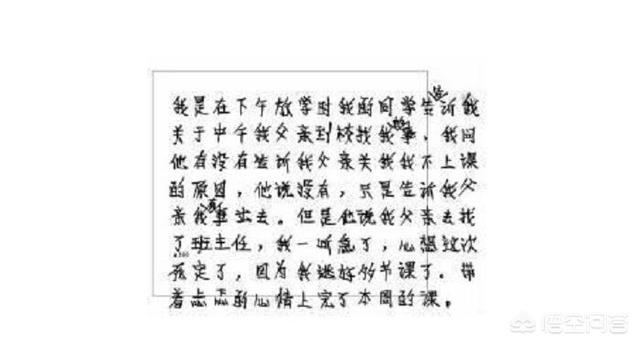 我是在下午放学时我的同学告诉我
关于中午我父亲到校找我事，我问
他有没有告诉我父亲关我我不上课
的原因，他说没有，只是告诉我父
亲我事出去。但是他说我父亲去找
了班主任，我一听急了，心想这次
死定了，因为我逃好多节课了。带
着忐忑的心情上完了本周的课。
悟空问答